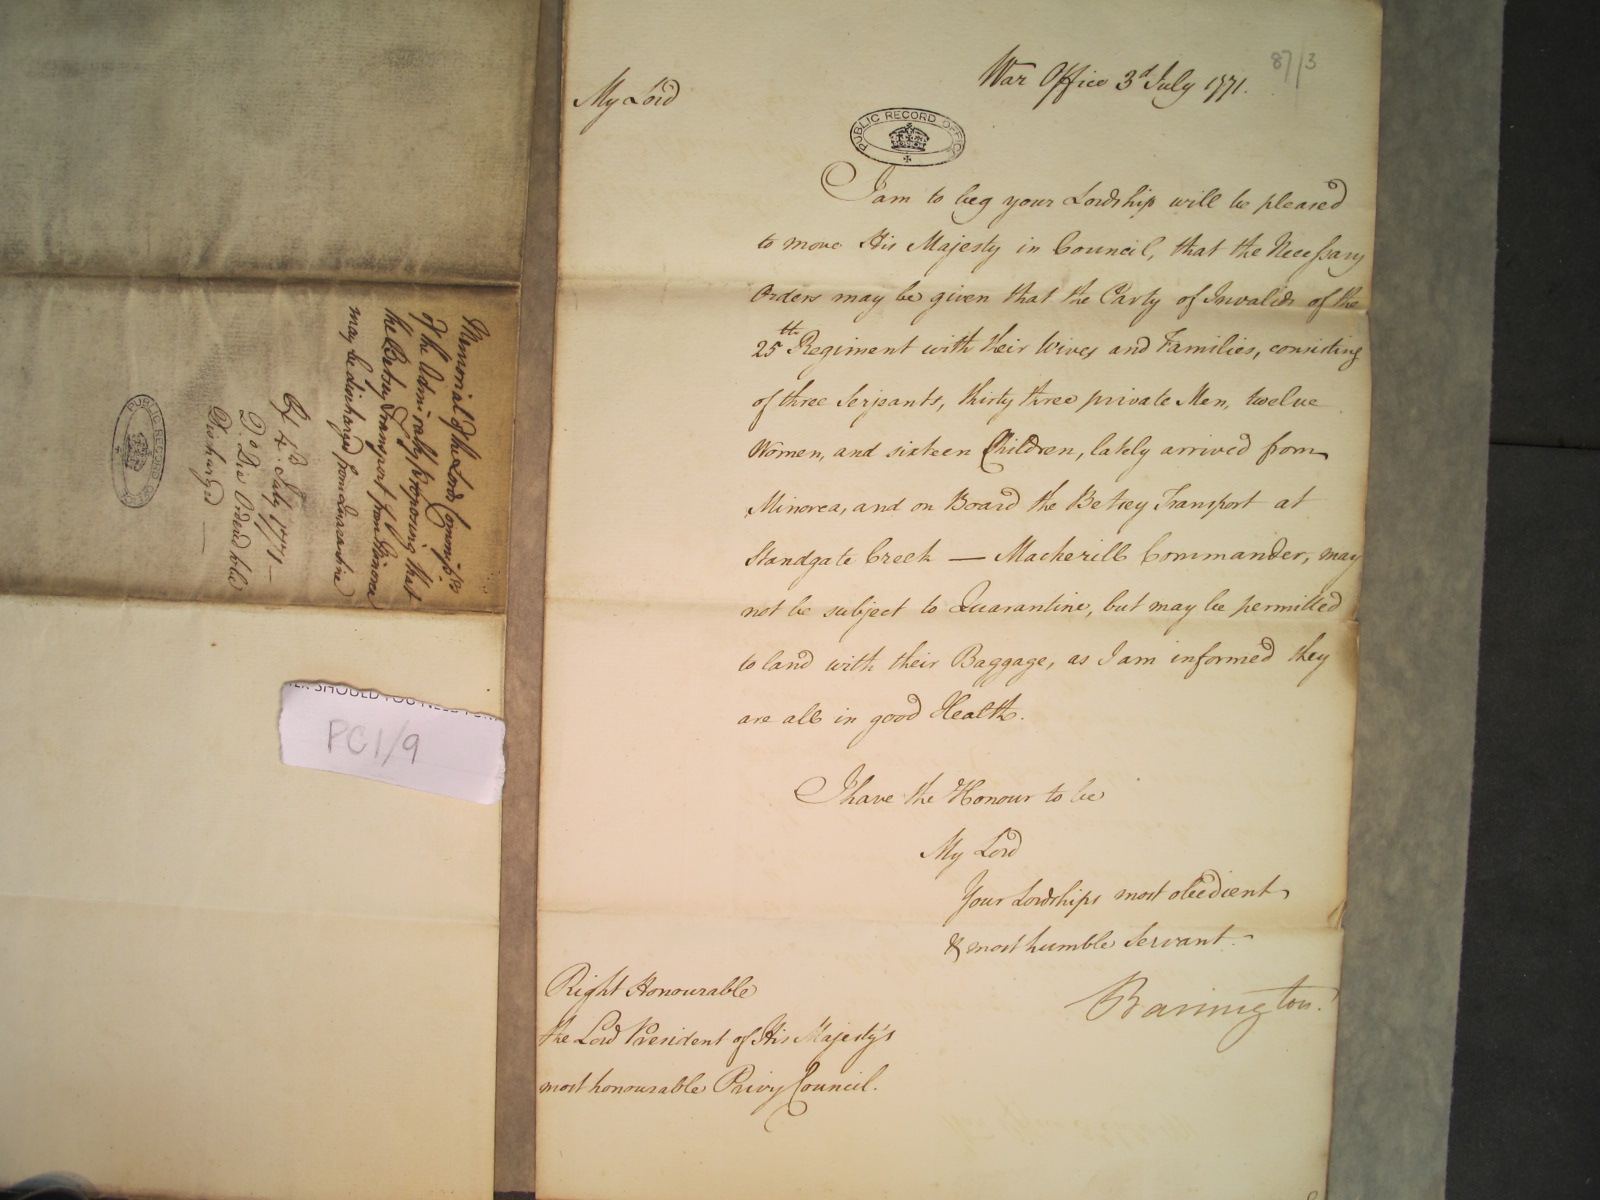 87/3
War Office 3d July 1771.
My Lord
PUBLIC RECORD OFFICE
I am to beg your Lordship will be pleased
to move His Majesty in Council, that the Necessary
Orders may be given that the Party of Invalids of the
25th Regiment with their Wives and Families, consisting
of three Serjeants, thirty three private Men, twelve
Women, and sixteen Children, lately arrived from
Minorca, and on Board the Betsey Transport at
Standgate Creek — Mackerill Commander, may
not be subject to Quarantine, but may be permitted
to land with their Baggage, as I am informed they
are all in good Health.
I have the Honour to be
My Lord
Your Lordships most obedient
& most humble Servant.
Barrington.
Right Honourable
the Lord President of His Majesty's
most honourable Privy Council.
Memorial of the Lords Commissrs
of the Admiralty proposing that
the Betsey Transport from Minorca
may be discharged from Quarantine
4th July 1771 —
Do Die Orderd to be
Discharged
PUBLIC RECORD OFFICE
PC1/9